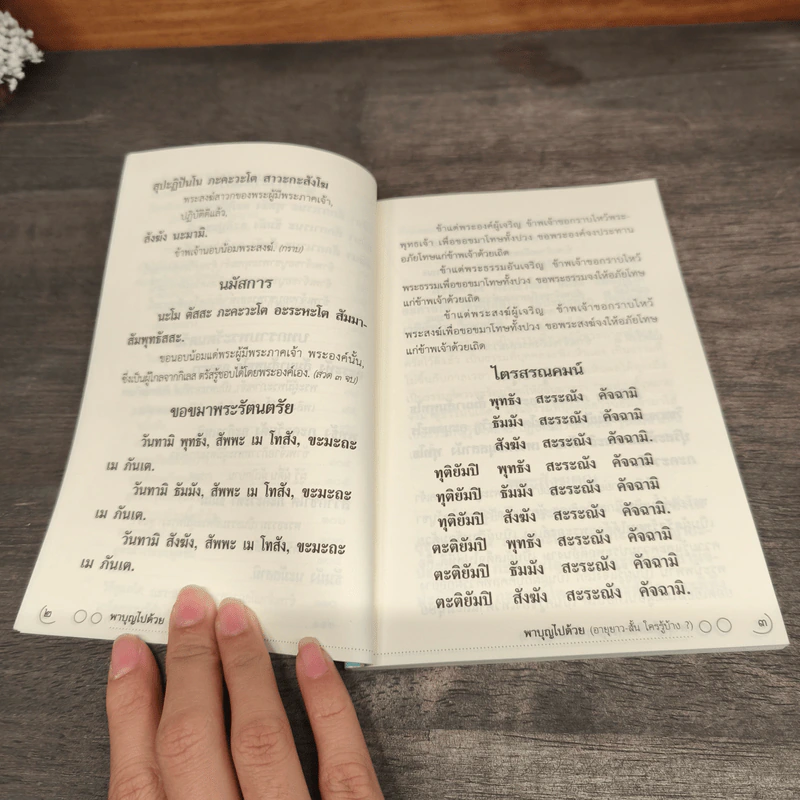 สุปะฏิปันโน ภะคะวะโต สาวะกะสังโฆ
พระสงฆ์สาวกของพระผู้มีพระภาคเจ้า,
ปฏิบัติดีแล้ว,
สังฆัง นะมามิ.
ข้าพเจ้านอบน้อมพระสงฆ์. (กราบ)
นมัสการ
นะโม ตัสสะ ภะคะวะโต อะระหะโต สัมมา-
สัมพุทธัสสะ.
ขอนอบน้อมแด่พระผู้มีพระภาคเจ้า พระองค์นั้น,
ซึ่งเป็นผู้ไกลจากกิเลส ตรัสรู้ชอบได้โดยพระองค์เอง. (สวด ๓ จบ)
ขอขมาพระรัตนตรัย
วันทามิ พุทธัง, สัพพะ เม โทสัง, ขะมะถะ
เม ภันเต.
วันทามิ ธัมมัง, สัพพะ เม โทสัง, ขะมะถะ
เม ภันเต.
วันทามิ สังฆัง, สัพพะ เม โทสัง, ขะมะถะ
เม ภันเต.
๒ พาบุญไปด้วย
ข้าแต่พระองค์ผู้เจริญ ข้าพเจ้าขอกราบไหว้พระ-
พุทธเจ้า เพื่อขอขมาโทษทั้งปวง ขอพระองค์จงประทาน
อภัยโทษแก่ข้าพเจ้าด้วยเถิด
ข้าแต่พระธรรมอันเจริญ ข้าพเจ้าขอกราบไหว้
พระธรรมเพื่อขอขมาโทษทั้งปวง ขอพระธรรมจงให้อภัยโทษ
แก่ข้าพเจ้าด้วยเถิด
ข้าแต่พระสงฆ์ผู้เจริญ ข้าพเจ้าขอกราบไหว้
พระสงฆ์เพื่อขอขมาโทษทั้งปวง ขอพระสงฆ์จงให้อภัยโทษ
แก่ข้าพเจ้าด้วยเถิด
ไตรสรณคมน์
พุทธัง สะระณัง คัจฉามิ
ธัมมัง สะระณัง คัจฉามิ
สังฆัง สะระณัง คัจฉามิ.
ทุติยัมปิ พุทธัง สะระณัง คัจฉามิ
ทุติยัมปิ ธัมมัง สะระณัง คัจฉามิ
ทุติยัมปิ สังฆัง สะระณัง คัจฉามิ.
ตะติยัมปิ พุทธัง สะระณัง คัจฉามิ
ตะติยัมปิ ธัมมัง สะระณัง คัจฉามิ
ตะติยัมปิ สังฆัง สะระณัง คัจฉามิ.
พาบุญไปด้วย (อายุยาว-สั้น ใครรู้บ้าง ?) ๓